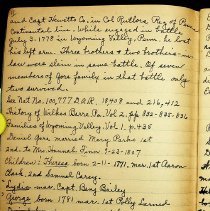 and Capt Hewitt Co. in Col Butlers Reg of Penn
Continental line. While engaged in battle
July 3-1778 in Wyoming Valley, Penn. he lost
his left arm. Three brothers & two brothers-in
law were slain in same battle. Of seven
members of Gore family in that battle only
two survived.
See Nat No. 100,777 D.A.R. 18,908 and 216,412
History of Wilkes Barre Pa. Vol 2, pp 833-835-836
Families of Wyoming Valley, Vol 1. p. 435
Daniel Gore married Mary Parks 1st
2nd. to Mrs
Children: Theresa born 2-11-1791, mar. 1st Aaron
Clark, 2nd Samuel Carey.
Lydia mar. Capt
George born 1781 mar. 1st Polly